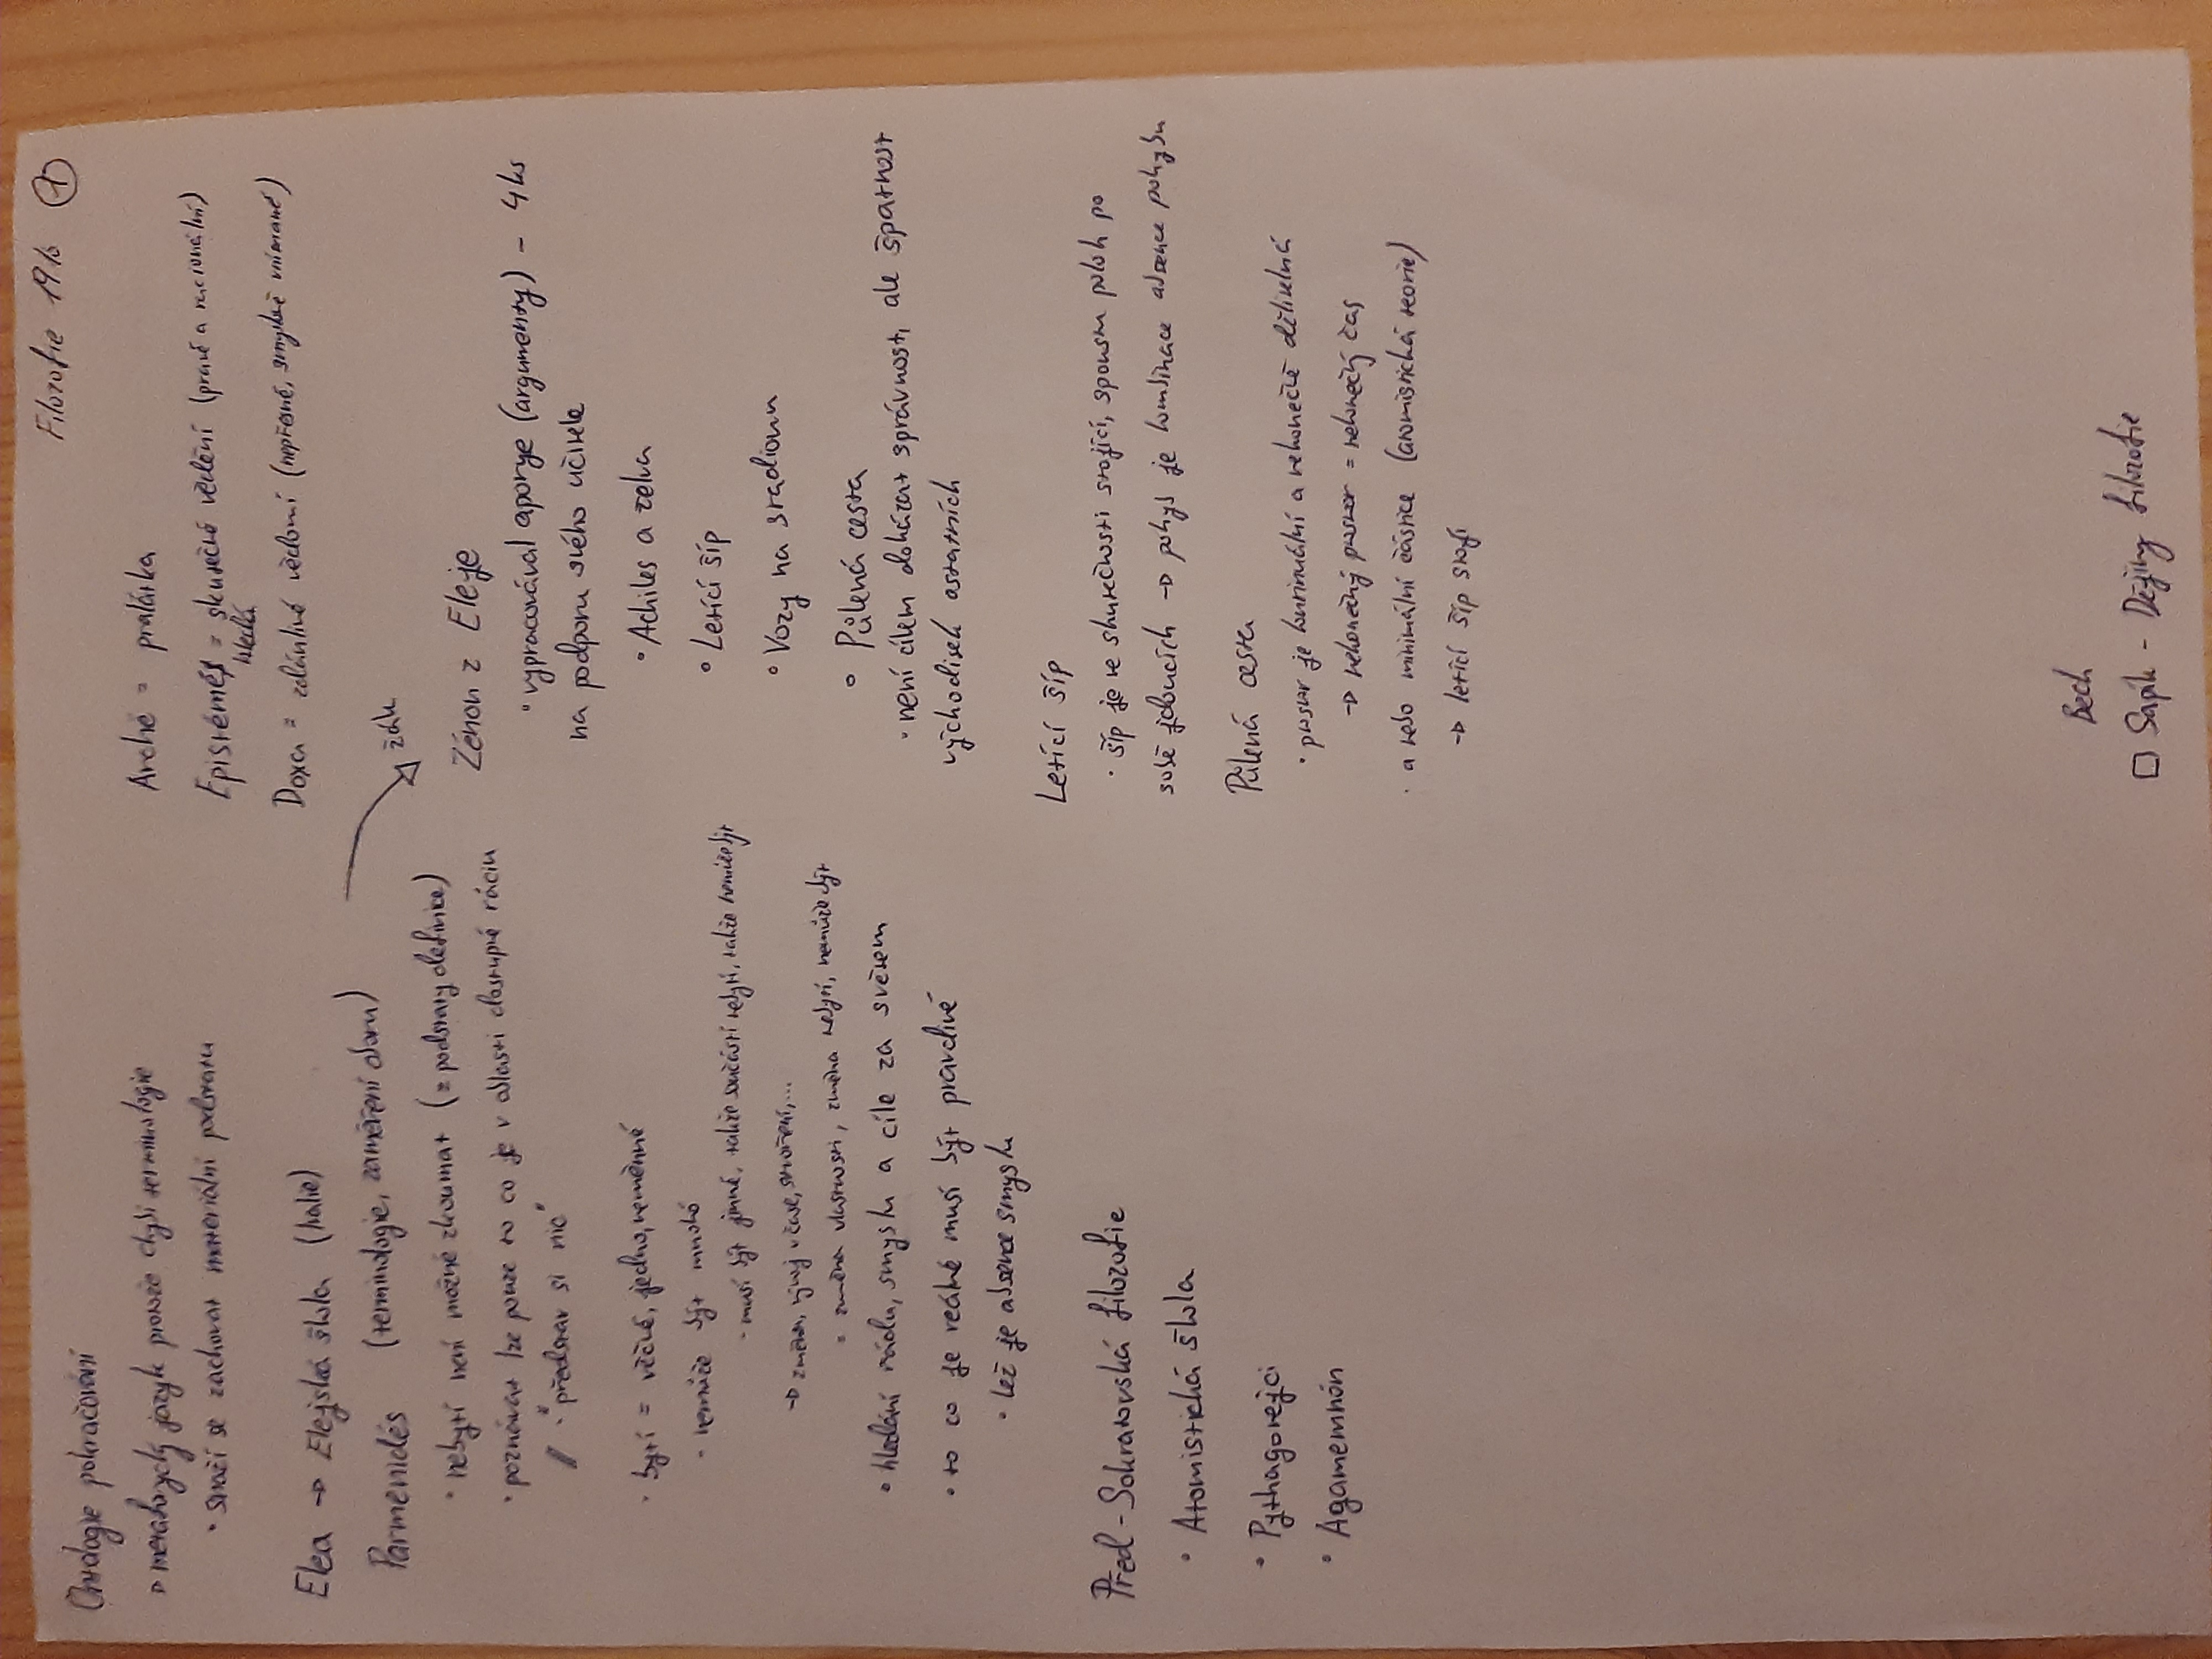 Filozofie 19.10 ①
Ontologie pokračování
→ metaforycký jazyk protože chybí terminologie
• snaží se zachovat materiální podstatu
Elea → Elejská škola (Itálie)
Parmenidés (terminologie, zaměření oboru)
• nebytí není možné zkoumat (z podstaty definice)
• poznávat lze pouze to co je v oblasti dostupné ráciu
// • "představ si nic"
• bytí = věčné, jedno, neměnné
• nemůže být mnohé
• musí být jiné, takže součástí nebytí, takže nemůže být
→ změna, vývoj v čase, stvoření,...
• změna vlastnosti, změna nebytí, nemůže být
• hledání řádu, smyslu a cíle za světem
• to co je reálné musí být pravdivé
• lež je absence smyslu
Před-Sokratovská filozofie
• Atomistická škola
• Pythagorejci
• Agamemnón
Arché = pralátka
Epistémé = skutečné vědění (pravé a racionální)
Doxa = zdánlivé vědomí (nepřesné, smyslově vnímané)
žák
Zénon z Eleje
• vypracovával aporye (argumenty) - 4ks
na podporu svého učitele
• Achiles a želva
• Letící šíp
• Vozy na stadionu
• Půlená cesta
• není cílem dokázat správnost, ale špatnost
východisek ostatních
Letící šíp
• šíp je ve skutečnosti stojící, spoustu poloh po
sobě jdoucích → pohyb je kombinace absence pohybu
Půlená cesta
• prostor je kontinuální a nekonečně dělitelná
→ nekonečný prostor = nekonečný čas
• a nebo minimální částice (atomistická teorie)
→ letící šíp stojí
Bech
☐ Sapík - Dějiny filozofie